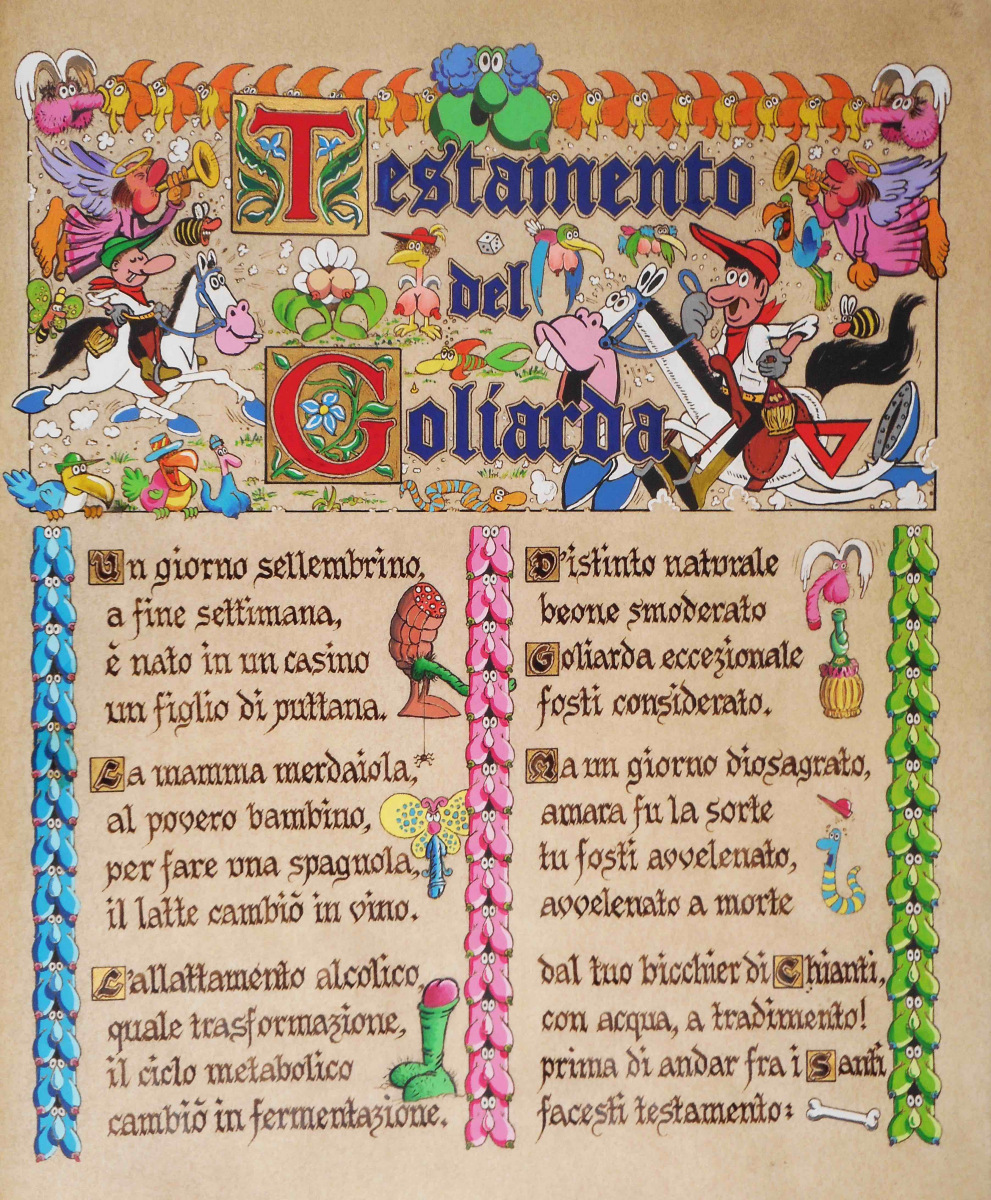 Testamento
del
Goliarda
Un giorno sellembrino,
a fine settimana,
è nato in un casino
un figlio di puttana.
La mamma merdaiola,
al povero bambino,
per fare una spagnola,
il latte cambiò in vino.
L'allattamento alcolico,
quale trasformazione,
il ciclo metabolico
cambiò in fermentazione.
D'istinto naturale
beone smoderato
Goliarda eccezionale
fosti considerato.
Ma un giorno diosagrato,
amara fu la sorte
tu fosti avvelenato,
avvelenato a morte
dal tuo bicchier di Chianti,
con acqua, a tradimento!
prima di andar fra i Santi
facesti testamento: